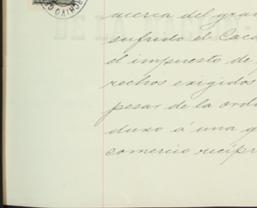 acerca del gra
sufrido el Caca
el impuesto de
rechos exigidos
pesar de la ord
dujo á una q
comercio recipr